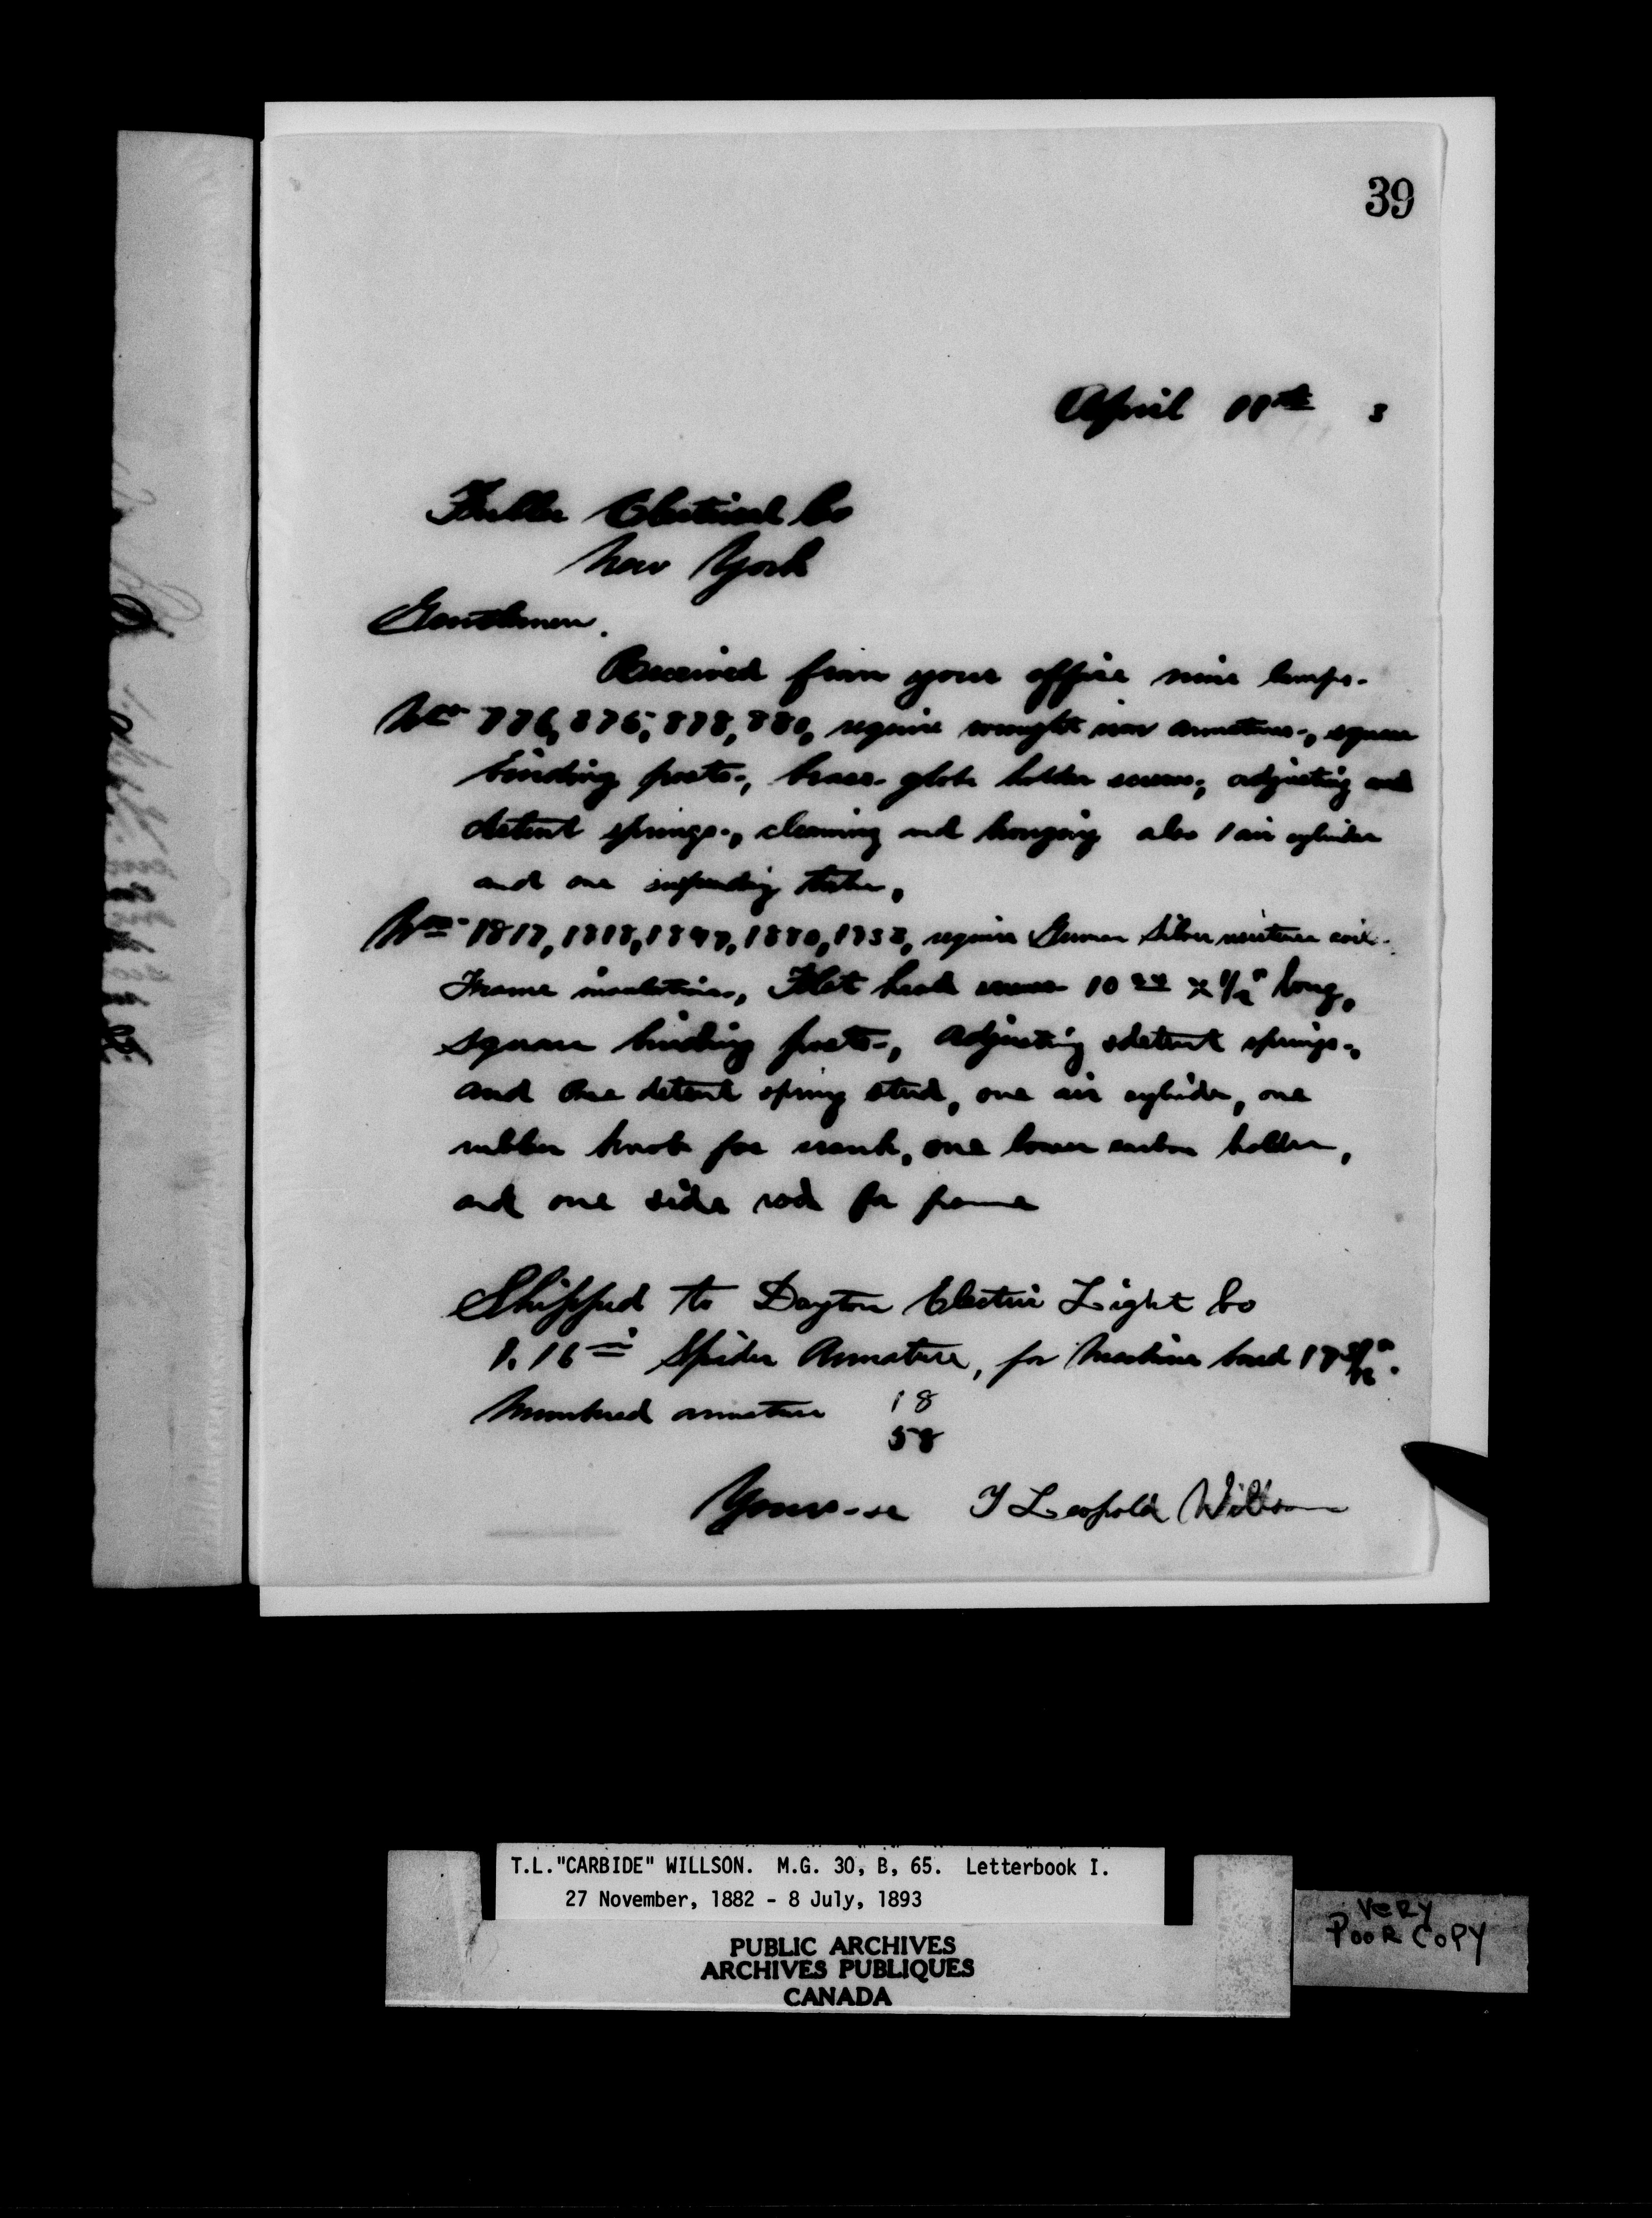 39
April 11th 3
Fuller Electrical Co
New York
Gentlemen.
Received from your office nine lamps.
Nos 776, 876, 878, 880, require wrought iron armatures, square
binding posts, brass globe holder screws, adjusting and
detent springs, cleaning and bronzing also 1 air cylinder
and one suspending
Nos 1817, 1818, 1897, 1880, 1838, require German Silver resistance coils.
Frame insulations, Flat head screws 10 24 x 1/2" long,
square binding posts, adjusting & detent springs,
and one detent spring stud, one air cylinder, one
rubber knob for crank, one lower carbon holder,
and one side rod for frame
Shipped to Dayton Electric Light Co
1. 16 in Spider Armature, for Machine bored 17
Numbered armature 18
58
Yours &c T Leopold Willson
T.L."CARBIDE" WILLSON. M.G. 30, B, 65. Letterbook I.
27 November, 1882 - 8 July, 1893
PUBLIC ARCHIVES
ARCHIVES PUBLIQUES
CANADA
VERY
POOR COPY